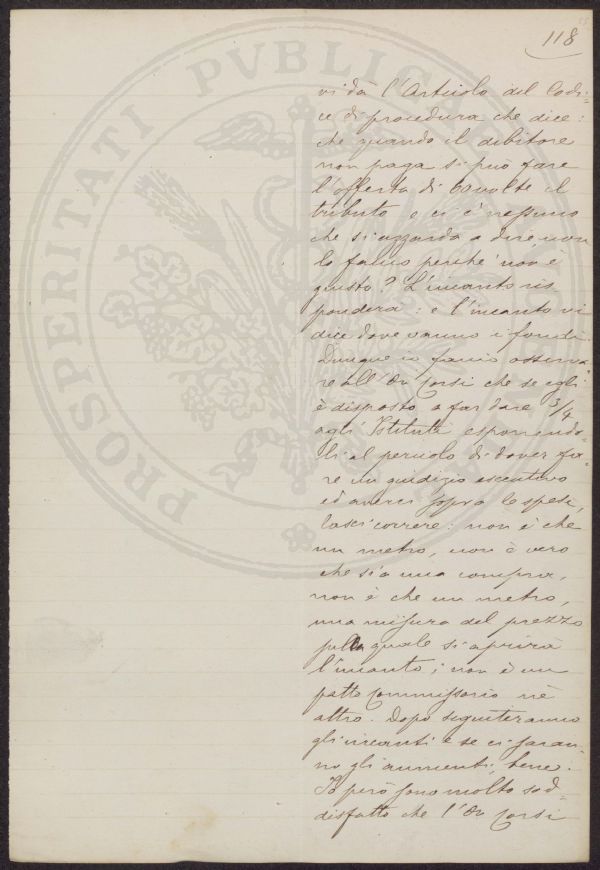 118
PROSPERITATI PVBLICAE
vi dà l'Articolo del Codi=
ce di procedura che dice:
che quando il debitore
non paga si può fare
l'offerta di 60 volte il
tributo e ci è nessuno
che si azzarda a dire non
lo faccio perchè non è
giusto? L'incanto ris
ponderà: e l'incanto vi
dice dove vanno i fondi.
Dunque io faccio osserva=
re all'On Corsi che se egli
è disposto a far dare 3/4
agli Istituti esponendo=
li al pericolo di dover fa=
re un giudizio esecutivo
ed averci sopra le spese,
lasci correre: non è che
un metro, non è vero
che sia una compra,
non è che un metro,
una misura del prezzo
sulla quale si aprirà
l'incanto; non è un
patto commissorio nè
altro. Dopo seguiteranno
gli incanti e se ci saran=
no gli aumenti, bene.
Io però sono molto sod=
disfatto che l'On Corsi